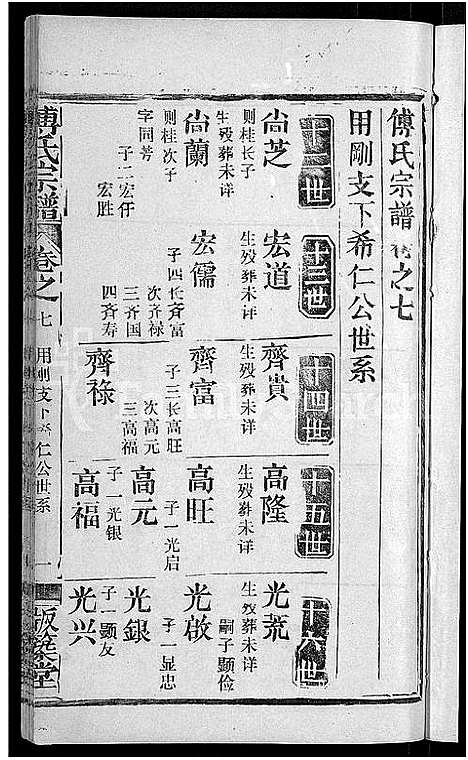 傅氏宗譜 卷之七
用剛支下希仁公世系
十二世
尚芝
則桂長子
生歿葬未详
尚蘭
生歿葬未详
则桂次子
字同芳
子二宏仔
宏胜
十三世
宏道
生歿葬未详
宏儒
子四长斉富
次斉禄
三斉国
四斉寿
十四世
齊貴
生歿葬未详
齊富
子三长高旺
次高元
三高福
齊祿
十五世
高隆
生歿葬未详
高旺
子一光启
高元
子一光银
高福
十六世
光荒
生歿葬未详
嗣子顕俭
光啟
子一显忠
光銀
子一顕友
光兴
傅氏宗譜
卷之七
用剛支下希仁公世系
一
版築堂